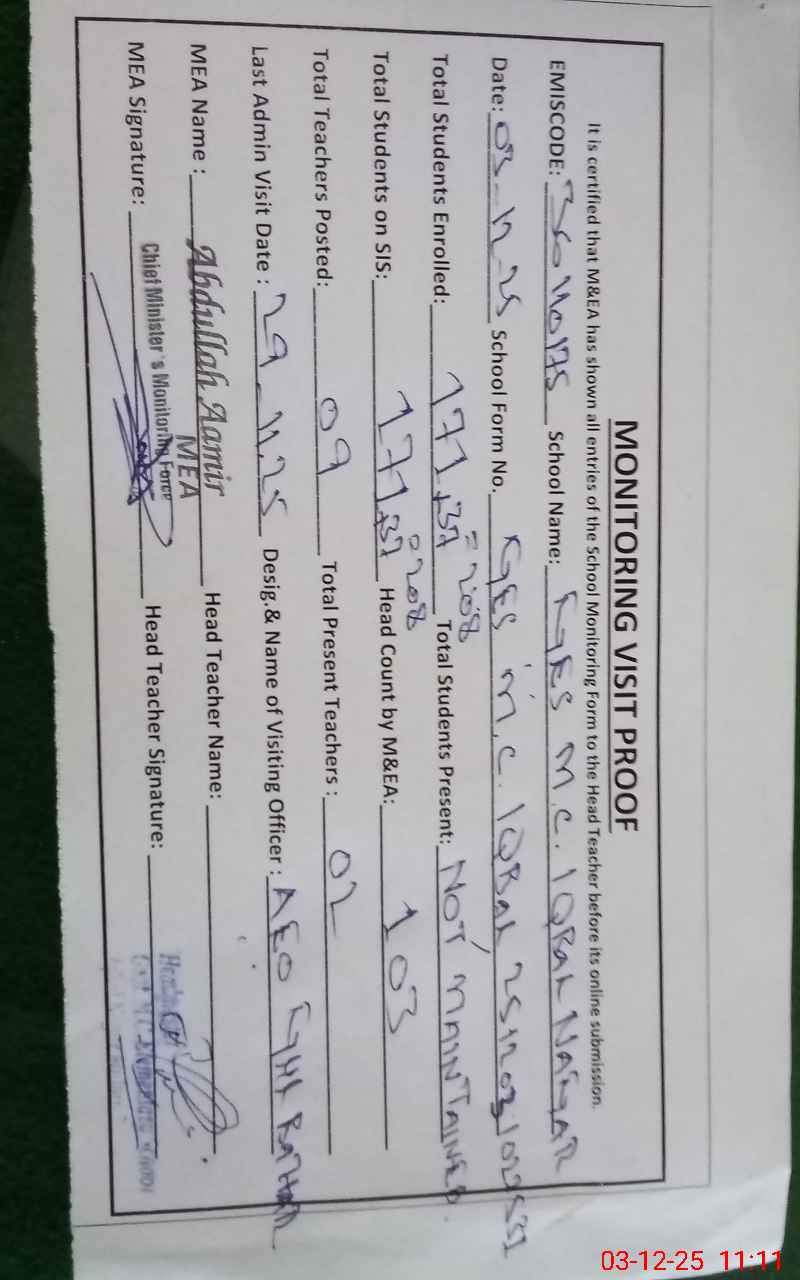 MONITORING VISIT PROOF
It is certified that M&EA has shown all entries of the School Monitoring Form to the Head Teacher before its online submission.
EMISCODE: School Name: M.C. IQBAL NAGAR
Date: 03-12-25 School Form No. M.C. IQBAL
Total Students Enrolled: 171+37 = 208 Total Students Present: NOT MAINTAINED
Total Students on SIS: 171+37 = 208 Head Count by M&EA: 103
Total Teachers Posted: 09 Total Present Teachers : 02
Last Admin Visit Date : 29-11-25 Desig.& Name of Visiting Officer : AEO
MEA Name : Abdullah Aamir MEA Head Teacher Name:
MEA Signature: Chief Minister's Monitoring Force Head Teacher Signature:
03-12-25 11:11